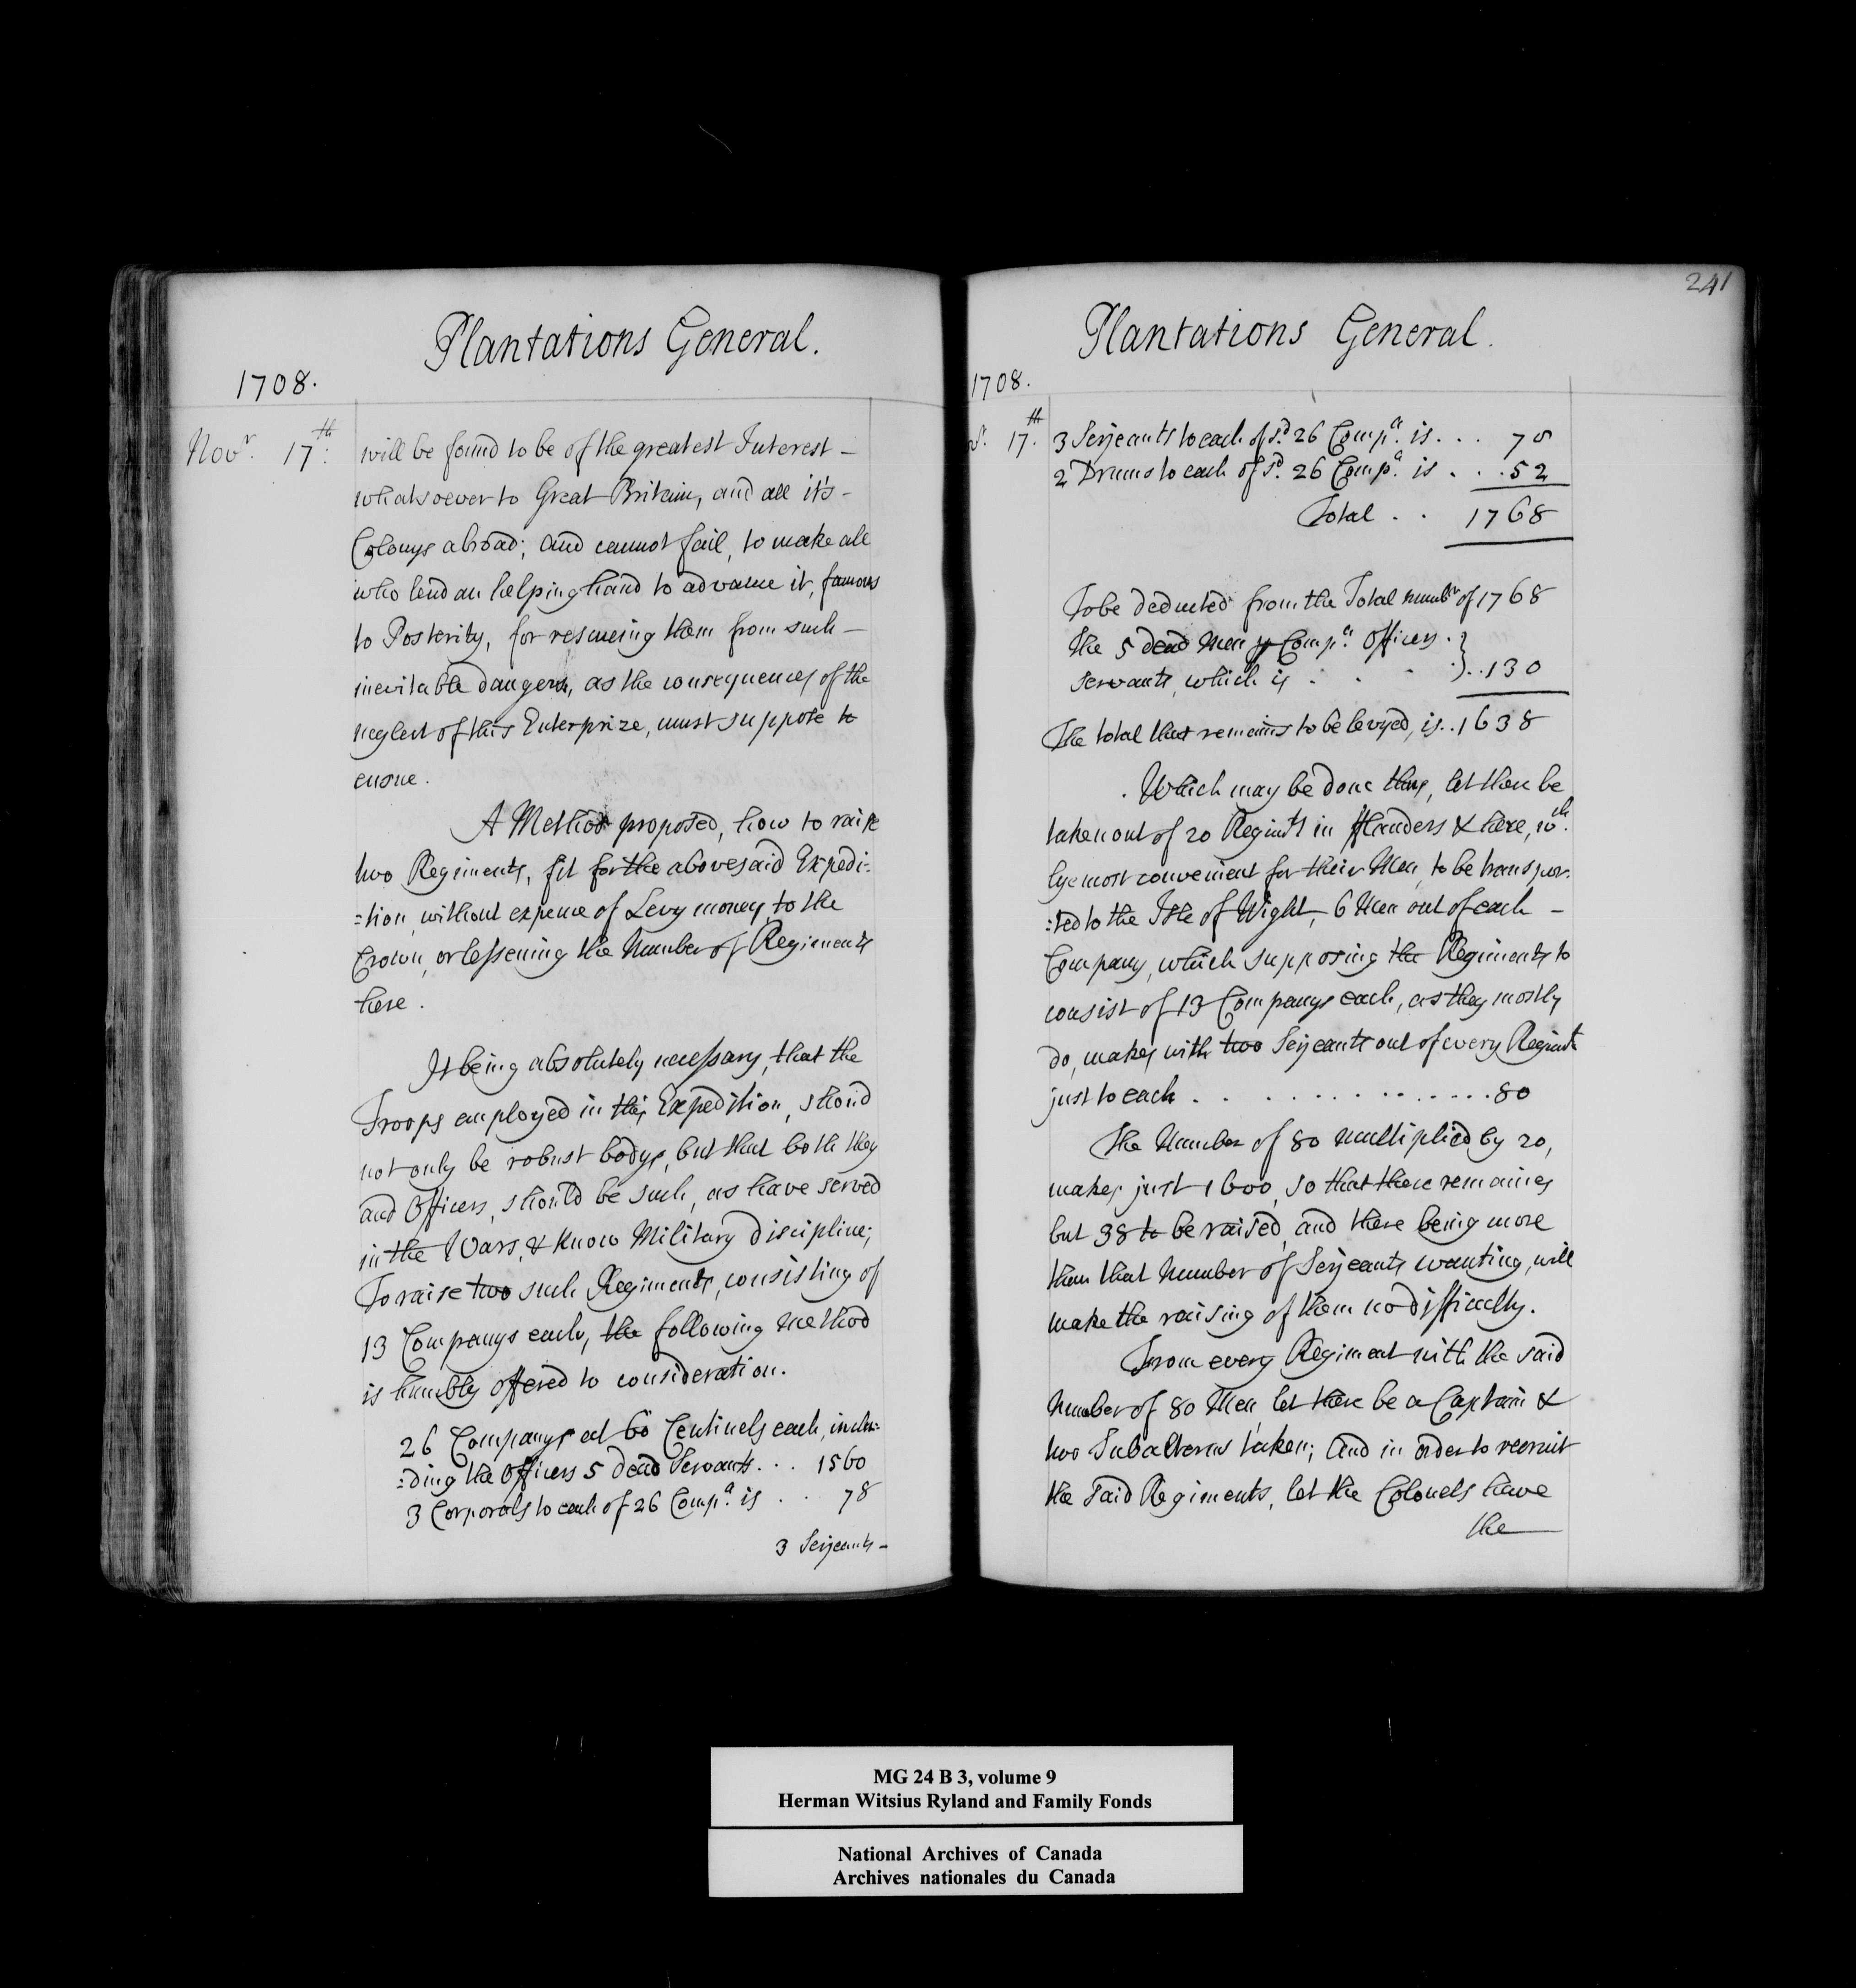 Plantations General.
1708.
Novr. 17th:
will be found to be of the greatest Interest -
whatsoever to Great Britain, and all it's -
Colonys abroad; and cannot fail, to make all
who lend an helping hand to advance it, famous
to Posterity, for rescueing them from such -
inevitable dangers, as the consequences of the
neglect of this Enterprize, must suppose to
ensue.
A Method proposed, how to raise
two Regiments, fit for the abovesaid Expedi:
=tion, without expence of Levy money, to the
Crown, or lessening the Number of Regiments
here.
It being absolutely necessary, that the
Troops employed in this Expedition, shou'd
not only be robust bodys, but that both they
and Officers, should be such, as have served
in the Wars, & know Military discipline;
To raise two such Regiments, consisting of
13 Companys each, the following method
is humbly offered to consideration.
26 Companys at 60 Centinels each, inclu=
=ding the Officers 5 dead Servants . . . 1560
3 Corporals to each of 26 Compa. is . . 78
3 Serjeants -
241
Plantations General.
1708.
r. 17th.
3 Serjeants to each of sd. 26 Compa. is . . . 78
2 Drums to each of sd. 26 Compa. is . . . 52
Total . . 1768
To be deducted from the Total numbr of 1768
the 5 dead Men p Compa. Officers .
Servants, which is . . . . . . 130
The total that remains to be levyed, is . . 1638
Which may be done thus, let there be
taken out of 20 Regimts in Flanders & here, wch.
lye most convenient for their Men, to be transpor:
:ted to the Isle of Wight, 6 Men out of each -
Company, which supposing the Regiments to
consist of 13 Companys each, as they mostly
do, makes with two Serjeants out of every Regimt
just to each . . . . . . . . . . . . . 80
The Number of 80 multiplied by 20,
makes just 1600, so that there remaines
but 38 to be raised, and there being more
than that Number of Serjeants wanting, will
make the raising of them no difficulty.
From every Regiment with the said
Number of 80 Men, let there be a Captain &
two Subalterns taken; And in order to recruit
the said Regiments, let the Colonels have
the
MG 24 B 3, volume 9
Herman Witsius Ryland and Family Fonds
National Archives of Canada
Archives nationales du Canada